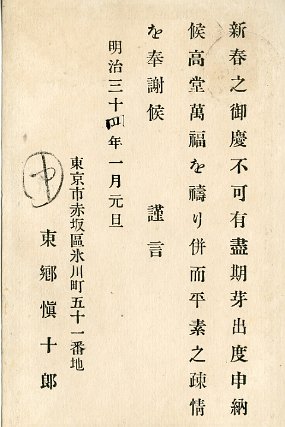 新春之御慶不可有盡期芽出度申納
候高堂萬福を禱り併而平素之疎情
を奉謝候　謹言
明治三十四年一月元旦
東京市赤坂區氷川町五十一番地
東郷愼十郎